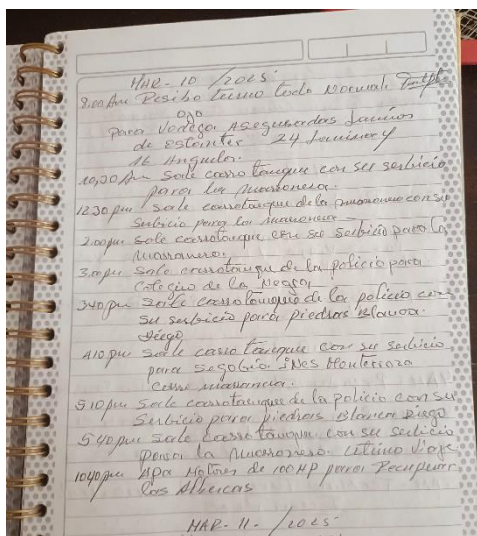 MAR - 10 / 2025
8:00 Am Resibo turno todo Normal.
ojo
para Vodega Aseguradas Laminas
de Estanter 24 Laminas y
16 Angulos.
10,30 Am Sale carro tanque con su serbicio
para la marranera.
12 30 pm Sale carrotanque de la marranera con su
Serbicio para la marranera
2.00 pm Sale carrotanque con su serbicio para la
marranera,
3.00 pm Sale carrotanque de la policia para
Colegio de la Negra,
340 pm Sale carro tanque de la policia con
su serbicio para piedras Blanca.
Diego
410 pm Sale carro tanque con su serbicio
para Segobia INes Monterroza
510 pm Sale carrotanque de la policia con su
Serbicio para piedras Blanca Diego
540 pm Sale carro tanque con su serbicio
para la marranera. Utimo Viaje
1040 pm Apa Motores de 100 HP para Recuperar
las Albercas
MAR - 11 - / 2025